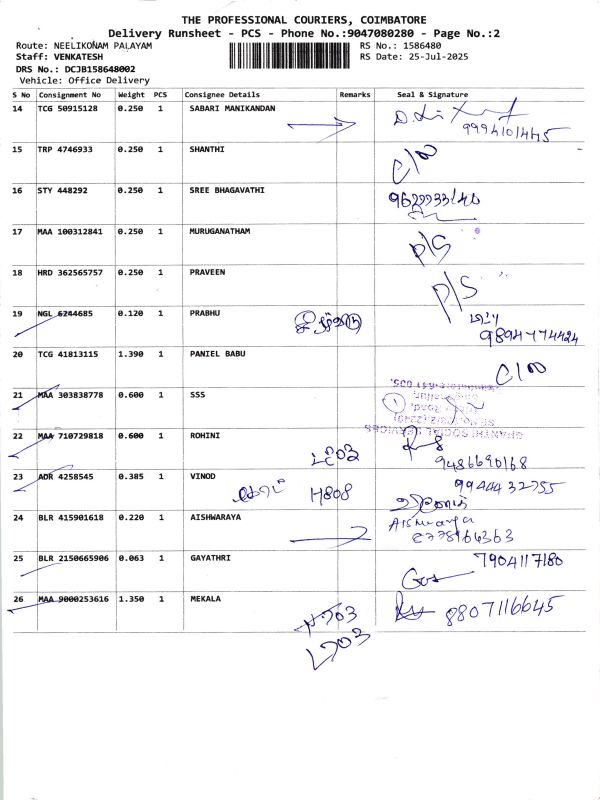 THE PROFESSIONAL COURIERS, COIMBATORE
Delivery Runsheet - PCS - Phone No.:9047080280 - Page No.:2
Route: NEELIKONAM PALAYAM
RS No.: 1586480
Staff: VENKATESH
RS Date: 25-Jul-2025
DRS No.: DCJB158648002
Vehicle: Office Delivery
S No Consignment No Weight PCS Consignee Details Remarks Seal & Signature
14 TCG 50915128 0.250 1 SABARI MANIKANDAN
15 TRP 4746933 0.250 1 SHANTHI C/N
16 STY 448292 0.250 1 SREE BHAGAVATHI
17 MAA 100312841 0.250 1 MURUGANATHAM P/S
18 HRD 362565757 0.250 1 PRAVEEN P/S
19 NGL 6244685 0.120 1 PRABHU
9894774424
20 TCG 41813115 1.390 1 PANIEL BABU C/N
21 MAA 303838778 0.600 1 SSS
SHANTHI SOCIAL SERVICES
22 MAA 710729818 0.600 1 ROHINI
9486690168
23 ADR 4258545 0.385 1 VINOD H808 9944432755
24 BLR 415901618 0.220 1 AISHWARAYA Aishwarya
25 BLR 2150665906 0.063 1 GAYATHRI 7904117180
26 MAA 9000253616 1.350 1 MEKALA 8807116645